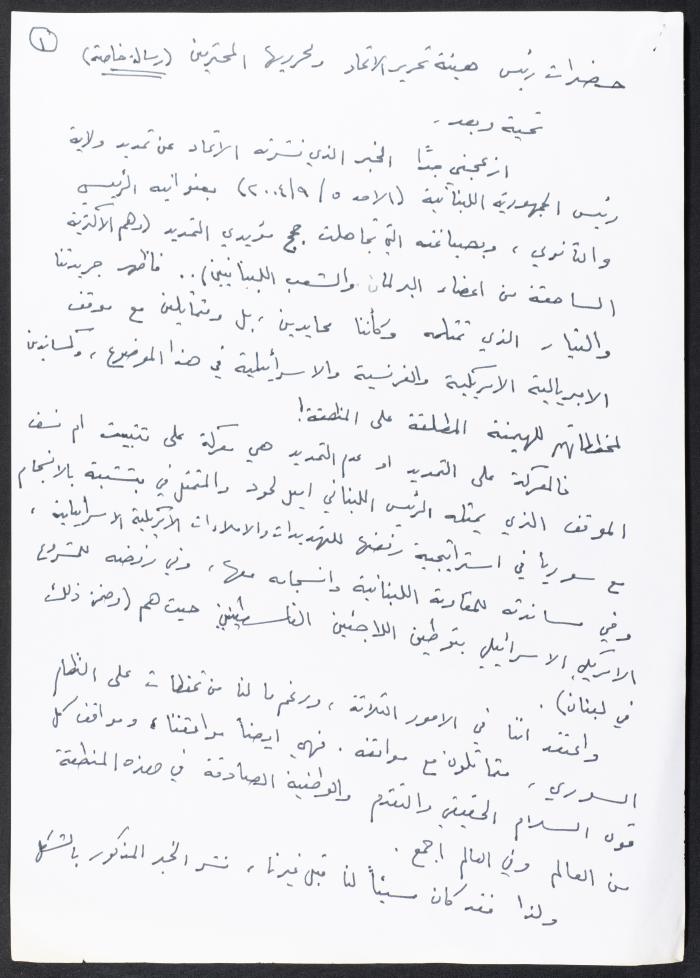 ١
حضرات رئيس هيئة تحرير الاتحاد ومحرريها المحترمين (رسالة خاصة)
تحية وبعد،
ازعجني جدًا الخبر الذي نشرته الاتحاد عن تمديد ولاية
رئيس الجمهورية اللبنانية (الاحد ٥/٩/٢٠٠٤) بعنوانيه الرئيسي
والثانوي، وبصياغته التي تجاهلت حجج مؤيدي التمديد (وهم الاكثرية
الساحقة من اعضاء البرلمان والشعب اللبنانيين).. فاظهر جريدتنا
والتيار الذي تمثله وكأننا محايدين، بل ومتماثلين مع موقف
الامبريالية الامريكية والفرنسية والاسرائيلية في هذا الموضوع، وكمساندين
لمخططاتهم للهيمنة المطلقة على المنطقة!
فالمعركة على التمديد او عدم التمديد هي معركة على تثبيت ام نسف
الموقف الذي يمثله الرئيس اللبناني اميل لحود والمتمثل في تشبثه بالانسجام
مع سوريا في استراتيجية رفضها للتهديدات والاملاءات الامريكية الاسرائيلية،
وفي مساندته للمقاومة اللبنانية وانسجامه معها، وفي رفضه للمشروع
الامريكي الاسرائيلي بتوطين اللاجئين الفلسطينيين حيث هم (وضمن ذلك
في لبنان).
واعتقد اننا في الامور الثلاثة، ورغم ما لنا من تحفظات على النظام
السوري، متماثلون مع مواقفه. فهي ايضا مواقفنا، ومواقف كل
قوى السلام الحقيقي والتقدم والوطنية الصادقة في هذه المنطقة
من العالم وفي العالم اجمع.
ولذا فقد كان مسيئًا لنا قبل غيرنا، نشر الخبر المذكور بالشكل